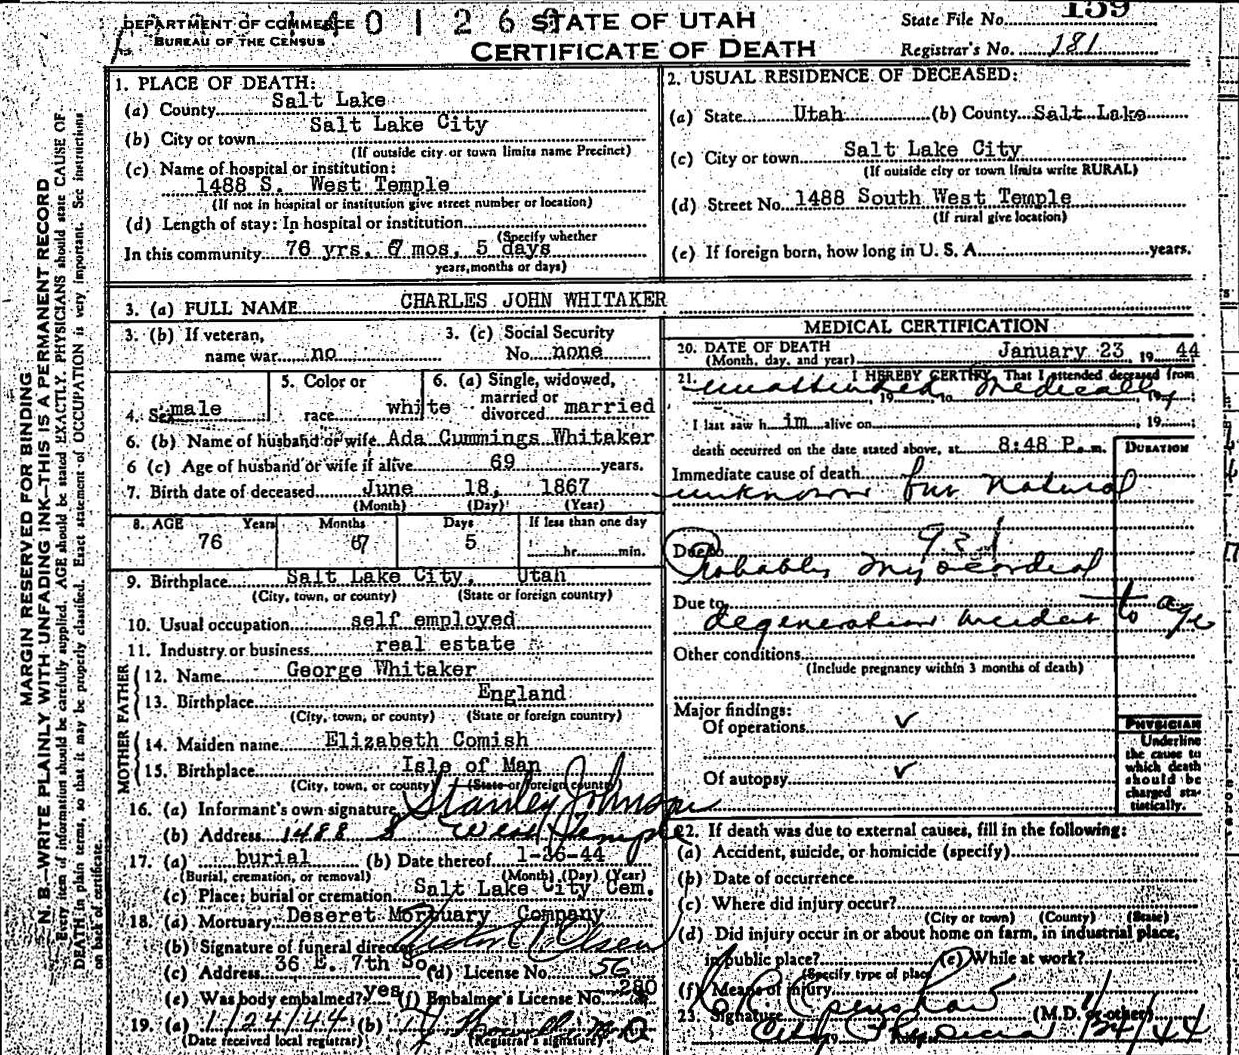 DEPARTMENT OF COMMERCE
BUREAU OF THE CENSUS
STATE OF UTAH
CERTIFICATE OF DEATH
State File No. 159
Registrar's No. 181
MARGIN RESERVED FOR BINDING
N. B.—WRITE PLAINLY WITH UNFADING INK—THIS IS A PERMANENT RECORD
Every item of information should be carefully supplied. AGE should be stated EXACTLY. PHYSICIANS should state CAUSE OF
DEATH in plain terms, so that it may be properly classified. Exact statement of OCCUPATION is very important. See instructions
on back of certificate.
1. PLACE OF DEATH:
(a) County Salt Lake
(b) City or town Salt Lake City
(If outside city or town limits name Precinct)
(c) Name of hospital or institution:
1488 S. West Temple
(If not in hospital or institution give street number or location)
(d) Length of stay: In hospital or institution
(Specify whether
In this community 76 yrs. 7 mos. 5 days
years, months or days)
2. USUAL RESIDENCE OF DECEASED:
(a) State Utah (b) County Salt Lake
(c) City or town Salt Lake City
(If outside city or town limits write RURAL)
(d) Street No. 1488 South West Temple
(If rural give location)
(e) If foreign born, how long in U. S. A. years.
3. (a) FULL NAME CHARLES JOHN WHITAKER
3. (b) If veteran, name war no
3. (c) Social Security No. none
4. Sex male
5. Color or race white
6. (a) Single, widowed, married or divorced married
6. (b) Name of husband or wife Ada Cummings Whitaker
6 (c) Age of husband or wife if alive 69 years.
7. Birth date of deceased June 18, 1867
(Month) (Day) (Year)
8. AGE Years Months Days If less than one day
76 7 5 hr. min.
9. Birthplace Salt Lake City, Utah
(City, town, or county) (State or foreign country)
10. Usual occupation self employed
11. Industry or business real estate
FATHER
12. Name George Whitaker
13. Birthplace England
(City, town, or county) (State or foreign country)
MOTHER
14. Maiden name Elizabeth Comish
15. Birthplace Isle of Man
(City, town, or county) (State or foreign country)
16. (a) Informant's own signature Stanley Johnson
(b) Address 1488 S West Temple
17. (a) burial (b) Date thereof 1-26-44
(Burial, cremation, or removal) (Month) (Day) (Year)
(c) Place: burial or cremation Salt Lake City Cem.
18. (a) Mortuary Deseret Mortuary Company
(b) Signature of funeral director Olsen
(c) Address 36 E. 7th So. (d) License No. 56
(e) Was body embalmed? yes (f) Embalmer's License No. 280
19. (a) 1/24/44 (b) M D
(Date received local registrar) (Registrar's signature)
MEDICAL CERTIFICATION
20. DATE OF DEATH
(Month, day, and year) January 23, 1944
21. I HEREBY CERTIFY, That I attended deceased from
unattended medically
, 19 , to , 19 ;
I last saw him alive on , 19 ;
death occurred on the date stated above, at 8:48 P.m.
DURATION
Immediate cause of death
unknown but natural
93-1
Due to
Probably myocardial
Due to
degeneration incident to age
Other conditions
(Include pregnancy within 3 months of death)
Major findings:
Of operations ✓
Of autopsy ✓
PHYSICIAN
Underline
the cause to
which death
should be
charged sta-
tistically.
22. If death was due to external causes, fill in the following:
(a) Accident, suicide, or homicide (specify)
(b) Date of occurrence
(c) Where did injury occur?
(City or town) (County) (State)
(d) Did injury occur in or about home on farm, in industrial place,
in public place? (e) While at work?
(Specify type of place)
(f) Means of injury
23. Signature (M.D. or other)
City Physician 1/24/44